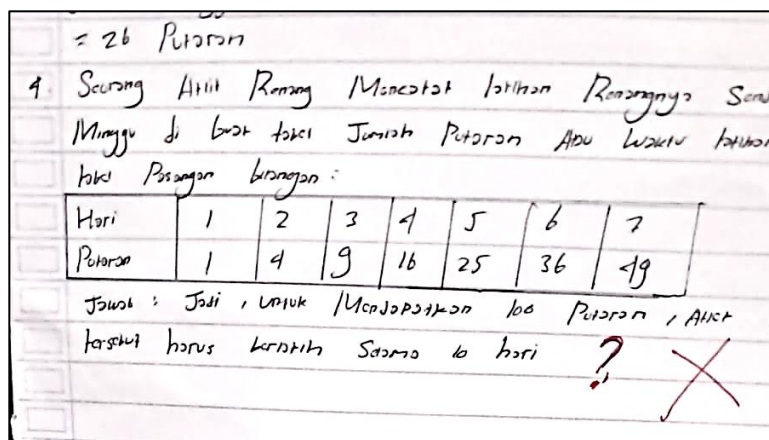 = 26 Putaran
4. Seorang Atlit Renang Mencatat latihan Renangnya
Minggu di buat tabel Jumlah Putaran Atau Waktu latihan
tabel Pasangan bilangan :
Hari 1 2 3 4 5 6 7
Putaran 1 4 9 16 25 36 49
Jawab : Jadi , untuk Mendapatkan 100 Putaran , Atlet
tersebut harus berlatih Selama 10 hari ?